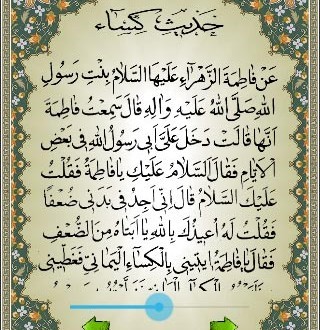 حَدیث کِساء
عَنْ فَاطِمَةَ الزَّهْرَاءِ عَلَيْهَا السَّلَامُ بِنْتِ رَسُولِ
اللهِ صَلَّى اللهُ عَلَيْهِ وَآلِهِ قَالَ سَمِعْتُ فَاطِمَةَ
أَنَّهَا قَالَتْ دَخَلَ عَلَيَّ أَبِي رَسُولُ اللهِ فِي بَعْضِ
الْأَيَّامِ فَقَالَ السَّلَامُ عَلَيْكِ يَا فَاطِمَةُ فَقُلْتُ
عَلَيْكَ السَّلَامُ قَالَ إِنِّي أَجِدُ فِي بَدَنِي ضُعْفًا
فَقُلْتُ لَهُ أُعِيذُكَ بِاللهِ يَا أَبَتَاهُ مِنَ الضُّعْفِ
فَقَالَ يَا فَاطِمَةُ ايتِينِي بِالْكِسَاءِ الْيَمَانِي فَغَطِّينِي